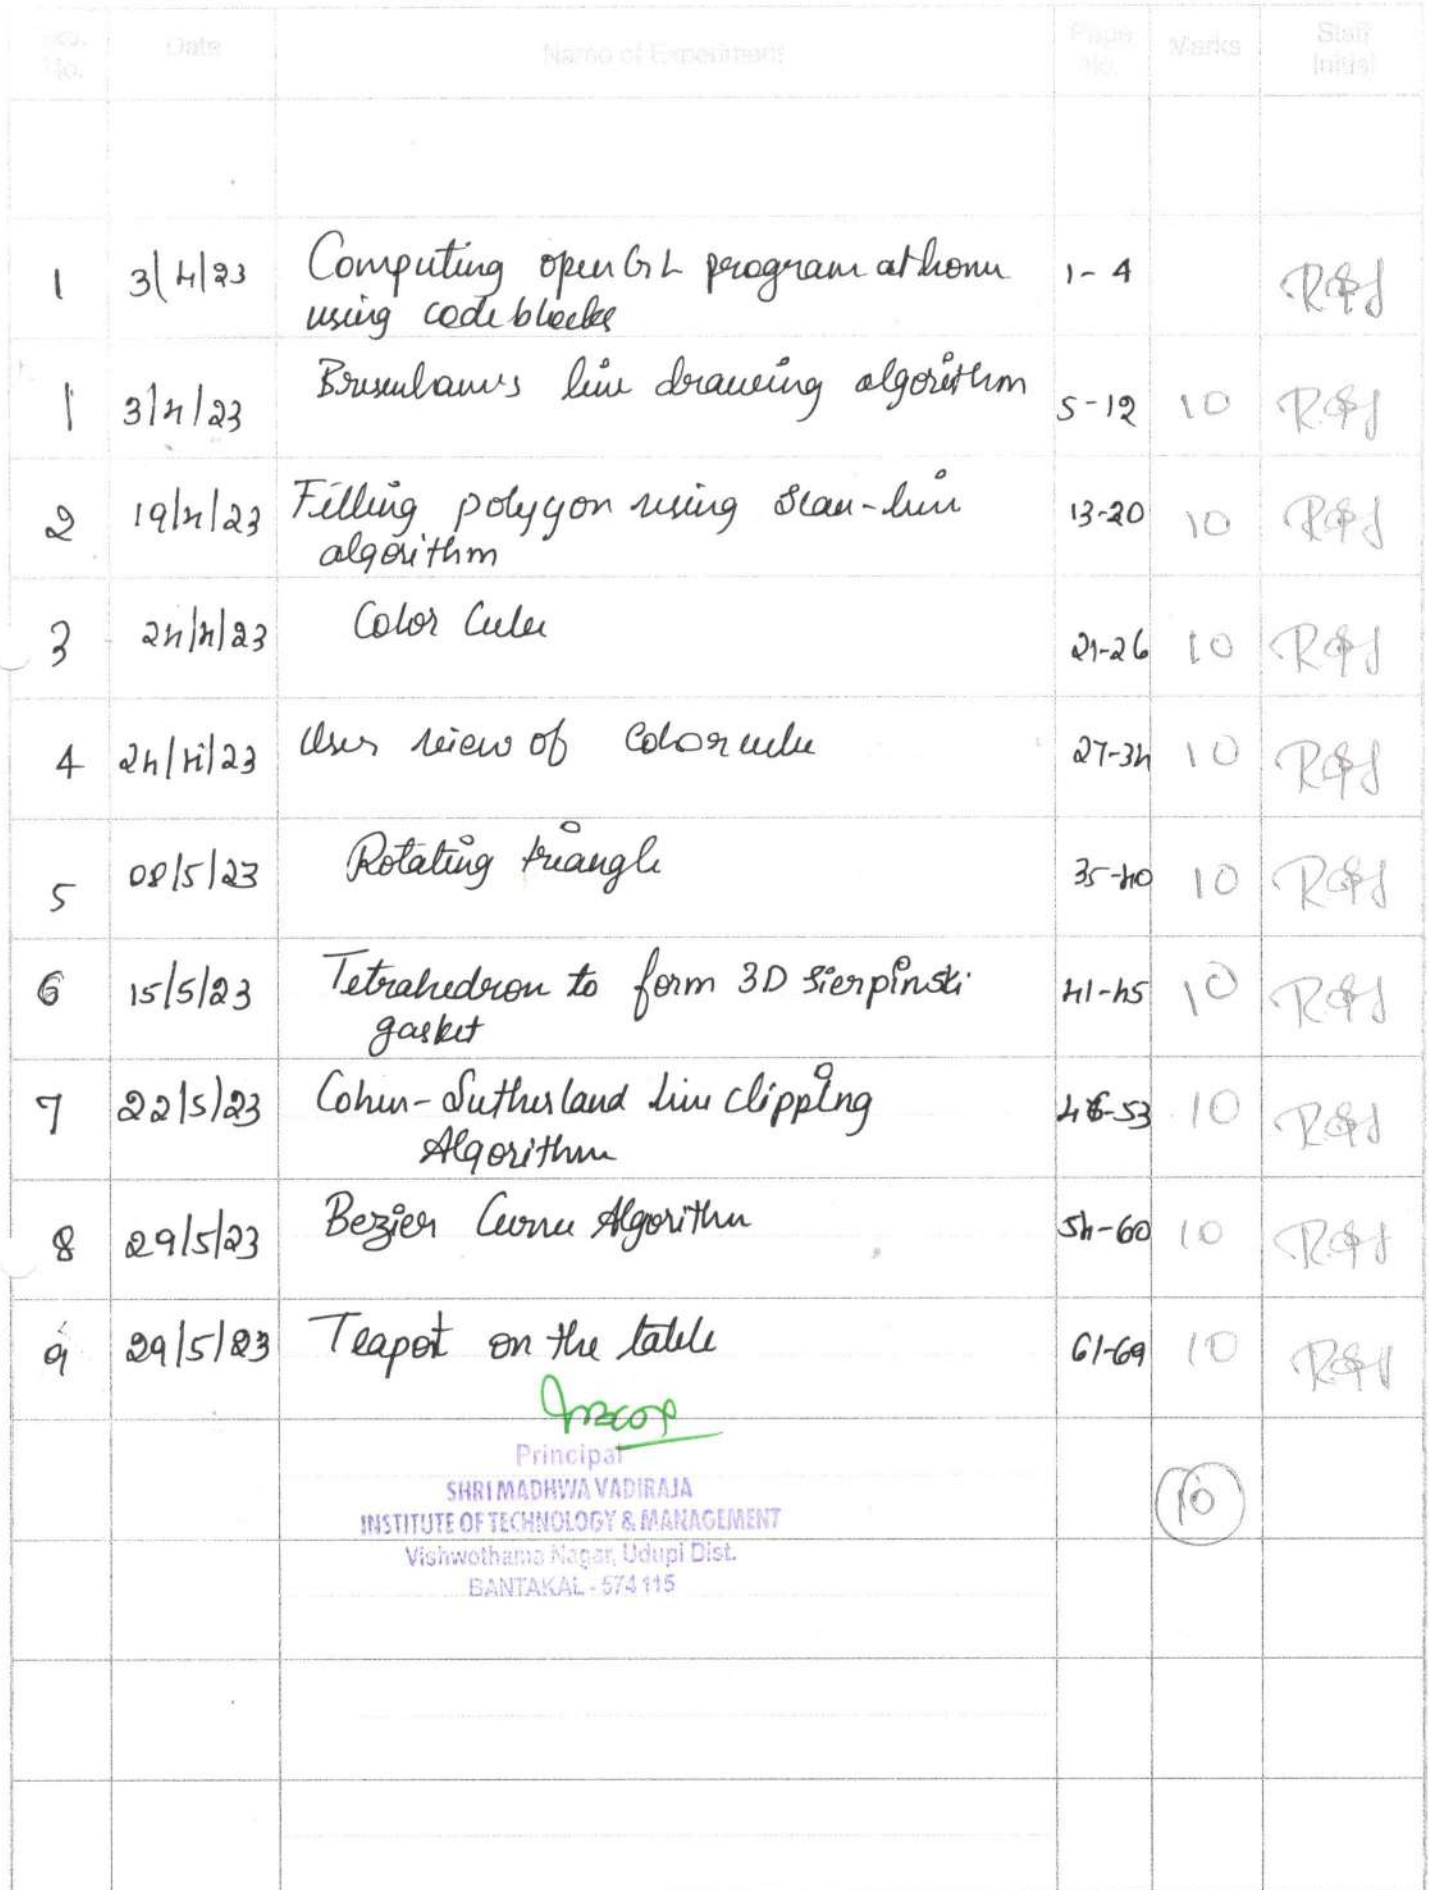 Exp. No. Date Name of Experiment Page No. Marks Staff Initial
1 3/4/23 Computing openGL program at home 1-4
using codeblocks
1 3/4/23 Bresenham's line drawing algorithm 5-12 10
2 19/4/23 Filling polygon using Scan-line 13-20 10
algorithm
3 24/4/23 Color Cube 21-26 10
4 24/4/23 User view of Color cube 27-34 10
5 08/5/23 Rotating triangle 35-40 10
6 15/5/23 Tetrahedron to form 3D sierpinski 41-45 10
gasket
7 22/5/23 Cohen-Sutherland line clipping 46-53 10
Algorithm
8 29/5/23 Bezier Curve Algorithm 54-60 10
9 29/5/23 Teapot on the table 61-69 10
Principal
SHRI MADHWA VADIRAJA
INSTITUTE OF TECHNOLOGY & MANAGEMENT
10
Vishwothama Nagar, Udupi Dist.
BANTAKAL - 574 115